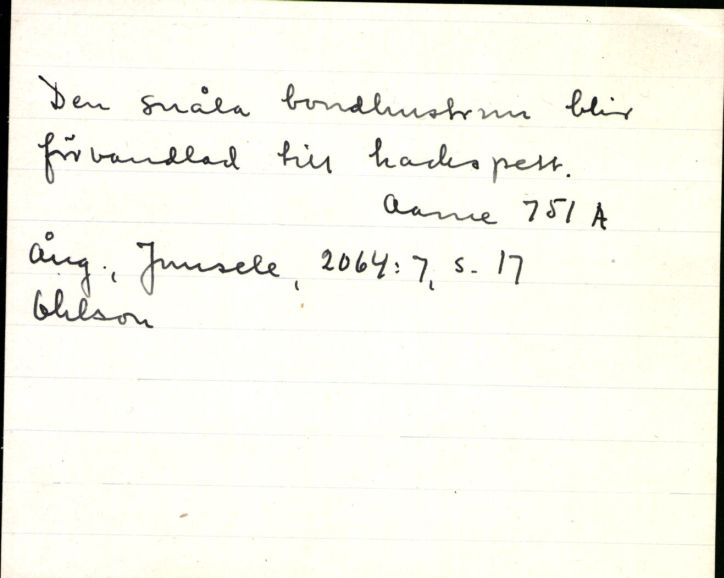 Den snåla bondhustrun blir
förvandlad till hackspett.
Aarne 751 A
Ång., Junsele, 2064:7, s. 17
Ohlson